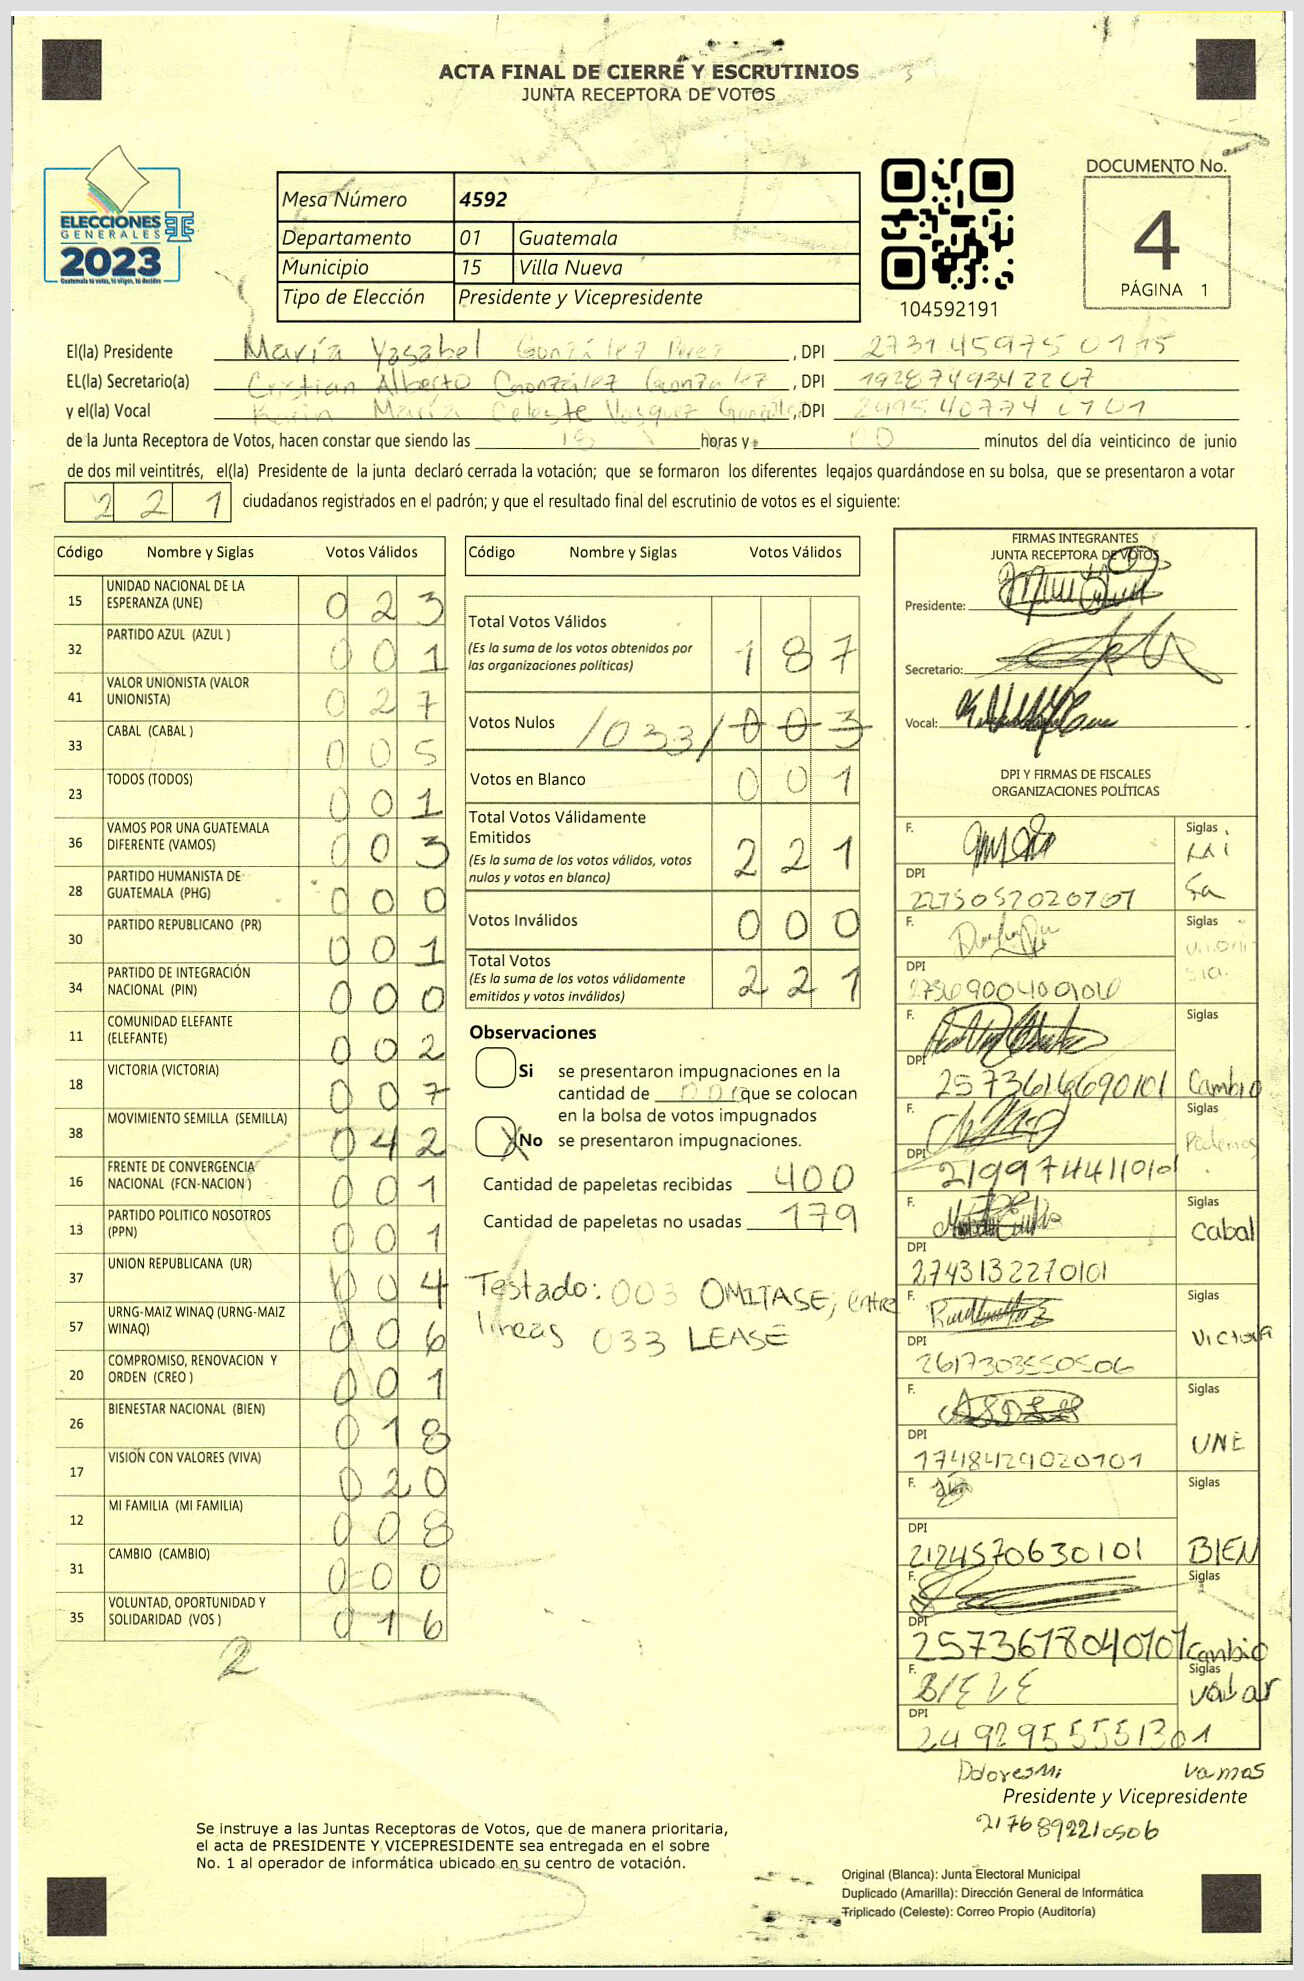 ACTA FINAL DE CIERRE Y ESCRUTINIOS
JUNTA RECEPTORA DE VOTOS
ELECCIONES
GENERALES
2023
Guatemala tú votas, tú eliges, tú decides
Mesa Número 4592
Departamento 01 Guatemala
Municipio 15 Villa Nueva
Tipo de Elección Presidente y Vicepresidente
104592191
DOCUMENTO No.
4
PÁGINA 1
El(la) Presidente María Yasabel González Perez, DPI 2731459750115
EL(la) Secretario(a) Cristian Alberto González Gonzalez, DPI 1928749342207
y el(la) Vocal Karin María Celeste Vasquez González, DPI 2495407740101
de la Junta Receptora de Votos, hacen constar que siendo las 18 horas y 00 minutos del día veinticinco de junio
de dos mil veintitrés, el(la) Presidente de la junta declaró cerrada la votación; que se formaron los diferentes legajos quardándose en su bolsa, que se presentaron a votar
221 ciudadanos registrados en el padrón; y que el resultado final del escrutinio de votos es el siguiente:
Código Nombre y Siglas Votos Válidos
15 UNIDAD NACIONAL DE LA ESPERANZA (UNE) 023
32 PARTIDO AZUL (AZUL ) 001
41 VALOR UNIONISTA (VALOR UNIONISTA) 027
33 CABAL (CABAL ) 005
23 TODOS (TODOS) 001
36 VAMOS POR UNA GUATEMALA DIFERENTE (VAMOS) 003
28 PARTIDO HUMANISTA DE GUATEMALA (PHG) 000
30 PARTIDO REPUBLICANO (PR) 001
34 PARTIDO DE INTEGRACIÓN NACIONAL (PIN) 000
11 COMUNIDAD ELEFANTE (ELEFANTE) 002
18 VICTORIA (VICTORIA) 007
38 MOVIMIENTO SEMILLA (SEMILLA) 042
16 FRENTE DE CONVERGENCIA NACIONAL (FCN-NACION ) 001
13 PARTIDO POLITICO NOSOTROS (PPN) 001
37 UNION REPUBLICANA (UR) 004
57 URNG-MAIZ WINAQ (URNG-MAIZ WINAQ) 006
20 COMPROMISO, RENOVACION Y ORDEN (CREO ) 001
26 BIENESTAR NACIONAL (BIEN) 018
17 VISIÓN CON VALORES (VIVA) 020
12 MI FAMILIA (MI FAMILIA) 008
31 CAMBIO (CAMBIO) 000
35 VOLUNTAD, OPORTUNIDAD Y SOLIDARIDAD (VOS ) 016
2
Código Nombre y Siglas Votos Válidos
Total Votos Válidos 187
(Es la suma de los votos obtenidos por
las organizaciones políticas)
Votos Nulos /033/ 003
Votos en Blanco 001
Total Votos Válidamente
Emitidos 221
(Es la suma de los votos válidos, votos
nulos y votos en blanco)
Votos Inválidos 000
Total Votos 221
(Es la suma de los votos válidamente
emitidos y votos inválidos)
Observaciones
Si se presentaron impugnaciones en la
cantidad de 000 que se colocan
en la bolsa de votos impugnados
X No se presentaron impugnaciones.
Cantidad de papeletas recibidas 400
Cantidad de papeletas no usadas 179
Testado: 003 OMITASE, entre
lineas 033 LEASE
FIRMAS INTEGRANTES
JUNTA RECEPTORA DE VOTOS
Presidente:
Secretario:
Vocal:
DPI Y FIRMAS DE FISCALES
ORGANIZACIONES POLÍTICAS
F. Siglas
DPI 2275057020707
F. Siglas
DPI 2736900400101
F. Siglas
DPI 2573616690101 Cambio
F. Siglas Podemos
DPI 2199744110101
F. Siglas Cabal
DPI 2743132270101
F. Siglas Victoria
DPI 2617303550506
F. Siglas UNE
DPI 1748429020101
F. Siglas
DPI 2124570630101 BIEN
F. Siglas
DPI 2573678040101 Cambio
F. Siglas Valor
DPI 2492955551301
Dolores Vamos
Presidente y Vicepresidente
2176892210506
Se instruye a las Juntas Receptoras de Votos, que de manera prioritaria,
el acta de PRESIDENTE Y VICEPRESIDENTE sea entregada en el sobre
No. 1 al operador de informática ubicado en su centro de votación.
Original (Blanca): Junta Electoral Municipal
Duplicado (Amarilla): Dirección General de Informática
Triplicado (Celeste): Correo Propio (Auditoría)